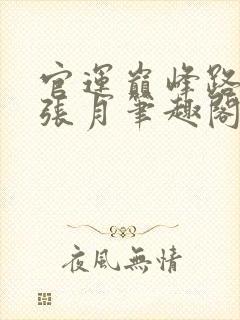 官運巔峰路
張月筆趣閣
夜風無情